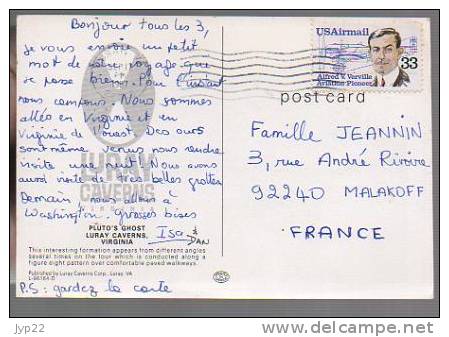 Bonjour tous les 3,
je vous envoie un petit
mot de notre voyage qui
se passe bien. Pour l'instant
nous campons. Nous sommes
allés en Virginie et en
Virginie de l'ouest. Des ours
sont même venus nous rendre
visite une nuit! Nous avons
aussi visité très belles grottes
Demain nous allons à
Washington. grosses bises
Isa &
DAN
LURAY
CAVERNS
VIRGINIA
PLUTO'S GHOST
LURAY CAVERNS,
VIRGINIA
This interesting formation appears from different angles
several times on the tour which is conducted along a
figure eight pattern over comfortable paved walkways.
Published by Luray Caverns Corp., Luray, VA
P.S: gardez la carte
USAirmail
33
Alfred V. Verville
Aviation Pioneer
post card
Famille JEANNIN
3, rue André Rivoire
92240 MALAKOFF
FRANCE
jyp22
http://www.delcampe.net